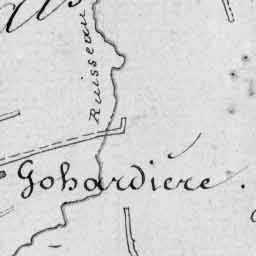 Ruisseau
Gohardière.